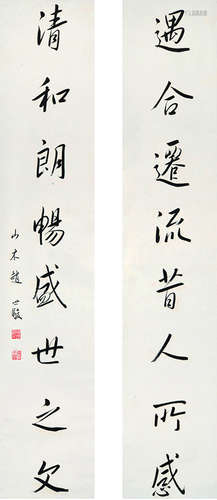 遇合遷流昔人所感
清和朗暢盛世之文
山木趙世駿